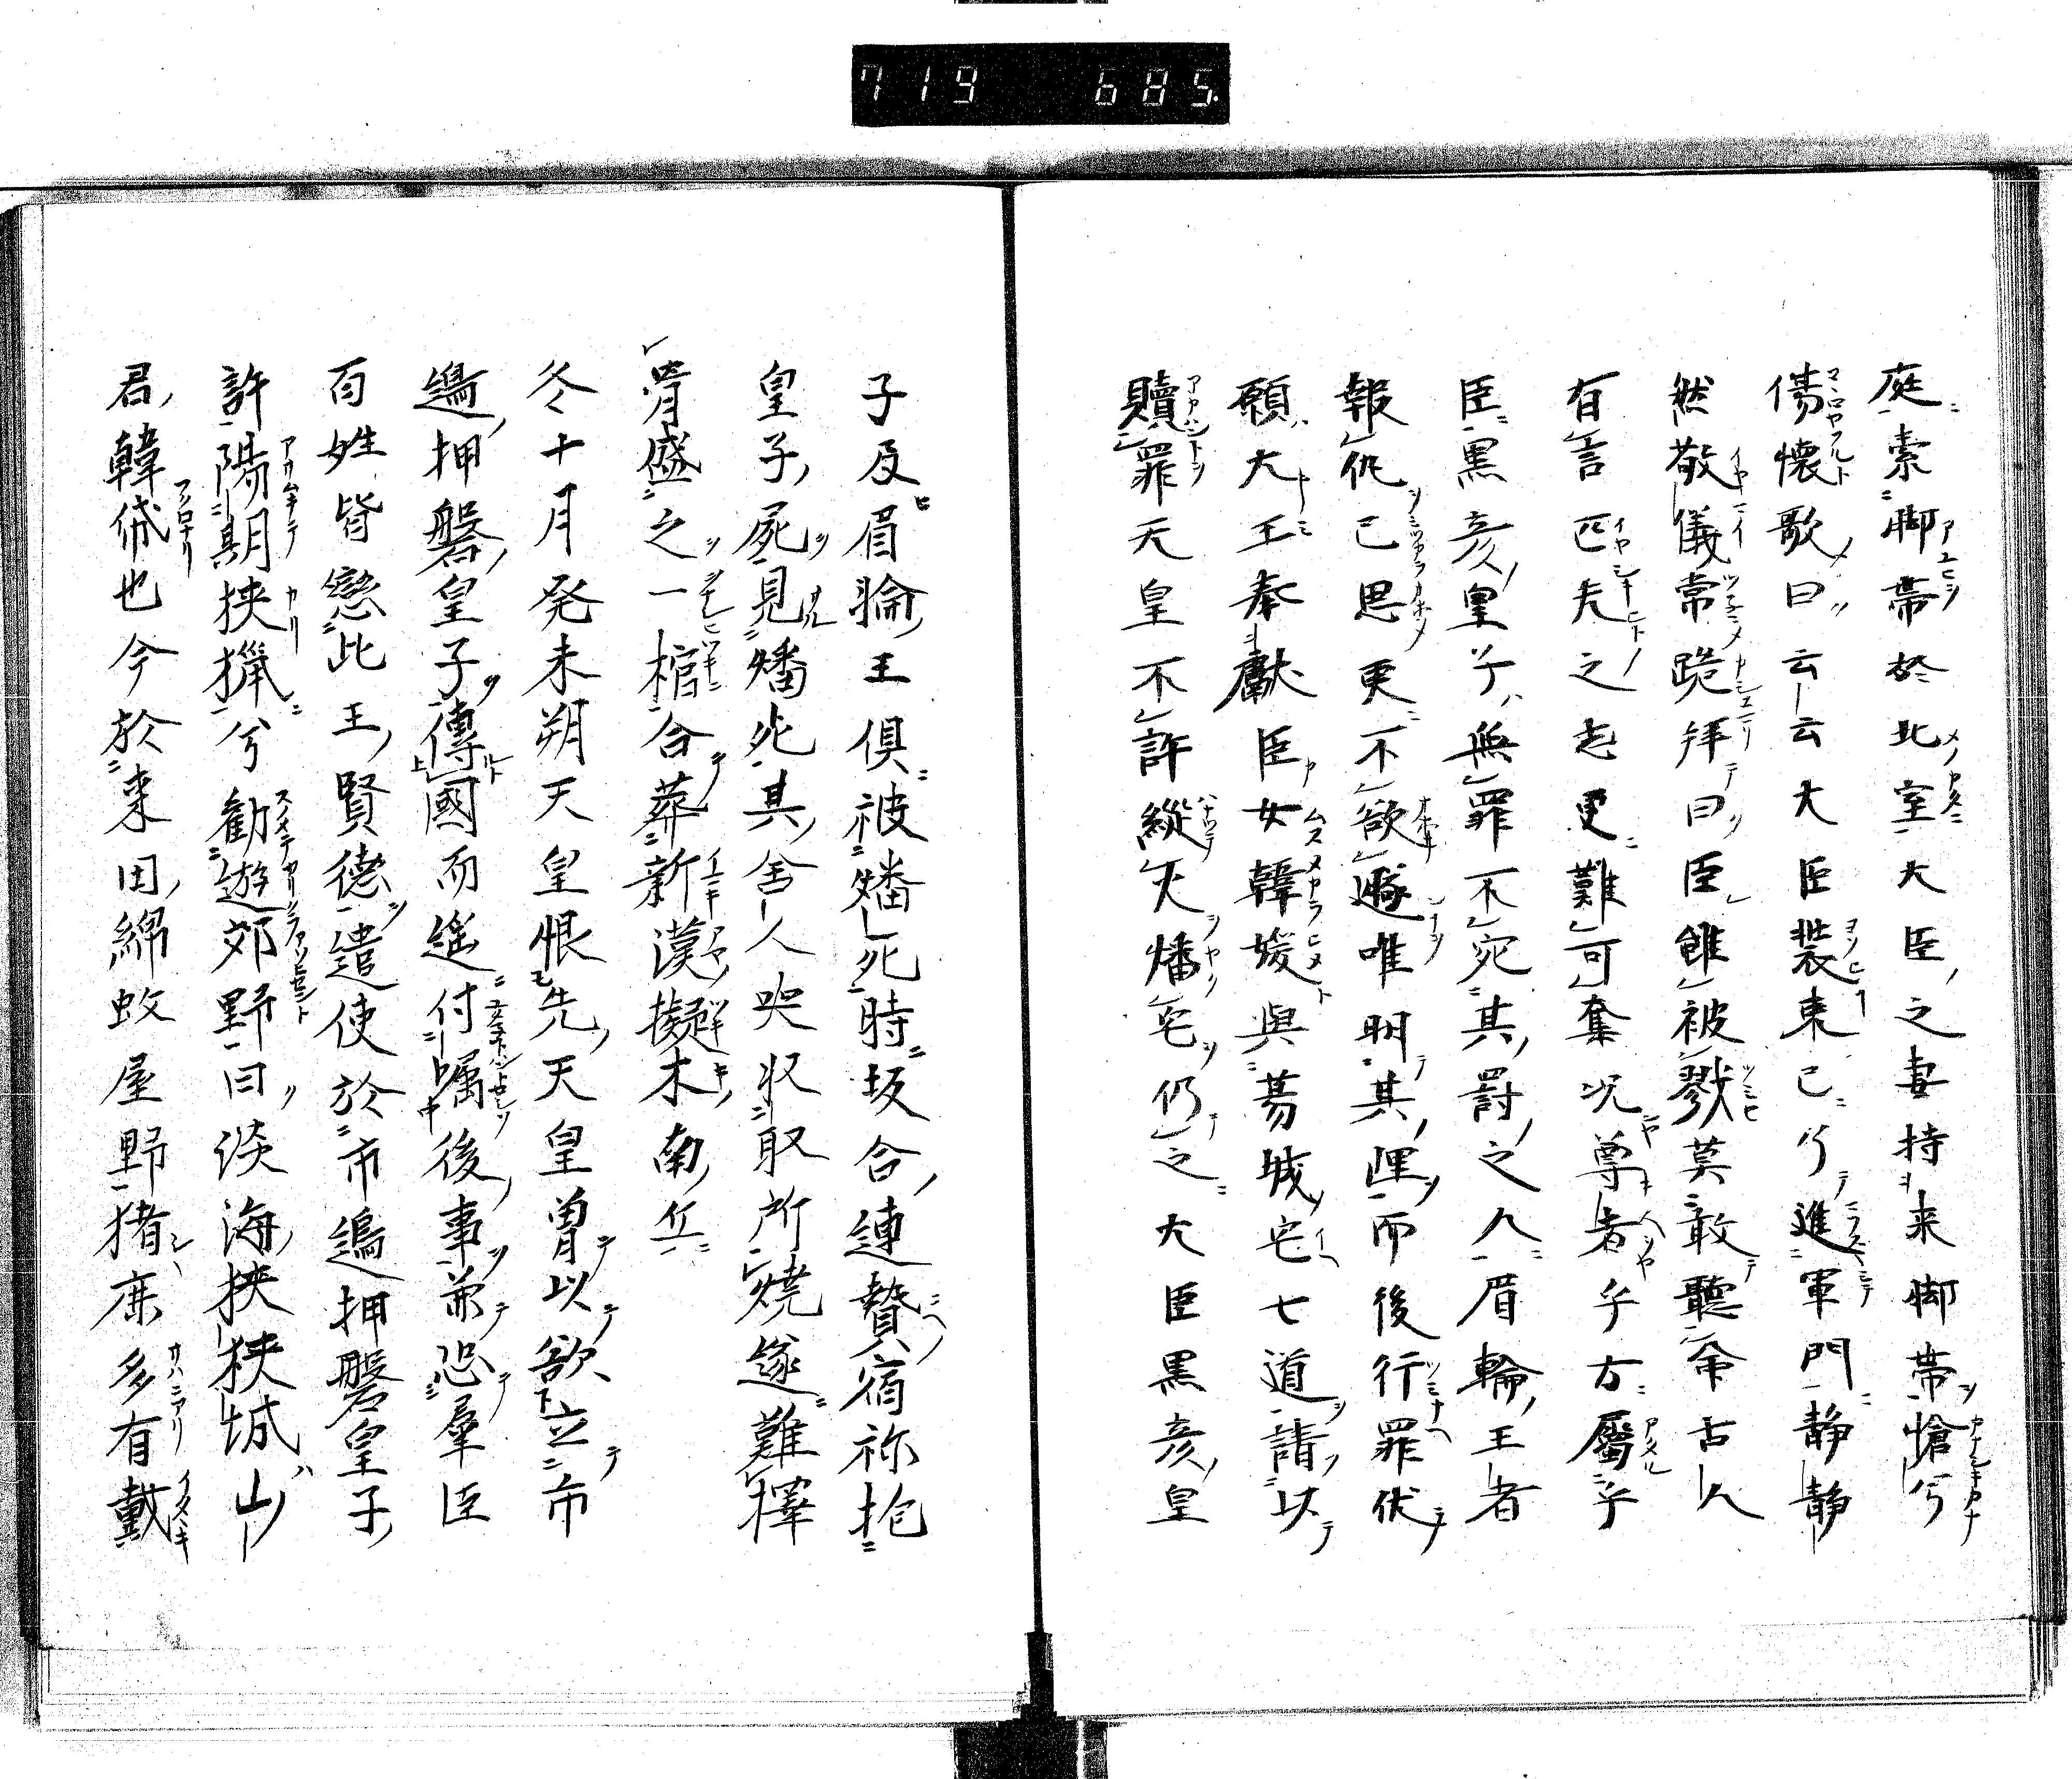 719 685.
庭索脚帯於北室大臣之妻持来脚帯愴兮
傷懐歌曰云云大臣装束已行進軍門静静
然敬儀常跪拝曰臣雖被戮莫敢聴命古人
有言匹夫之志更難可奪况尊者乎方属乎
臣黒彦皇子無罪不宛其罰之人眉輪王者
報仇已思更不欲遯唯明其理而後行罪伏
願大王奉獻臣女韓媛與葛城宅七道請以
贖罪天皇不許縦火燔宅仍之大臣黒彦皇
子及眉輪王倶被燔死時坂合連贄宿祢抱
皇子屍見燔死其舎人収取所燒遂難擇
骨盛之一棺合葬新漢擬木南丘
冬十月癸未朔天皇恨先天皇曽以欲立市
邊押磐皇子傳國而遥付嘱後事亦恐羣臣
百姓皆戀此王賢徳遣使於市邊押磐皇子
許陽期挟猟兮勸遊郊野曰淡海狭狭城山
君韓帒也今於来田綿蚊屋野猪鹿多有戴